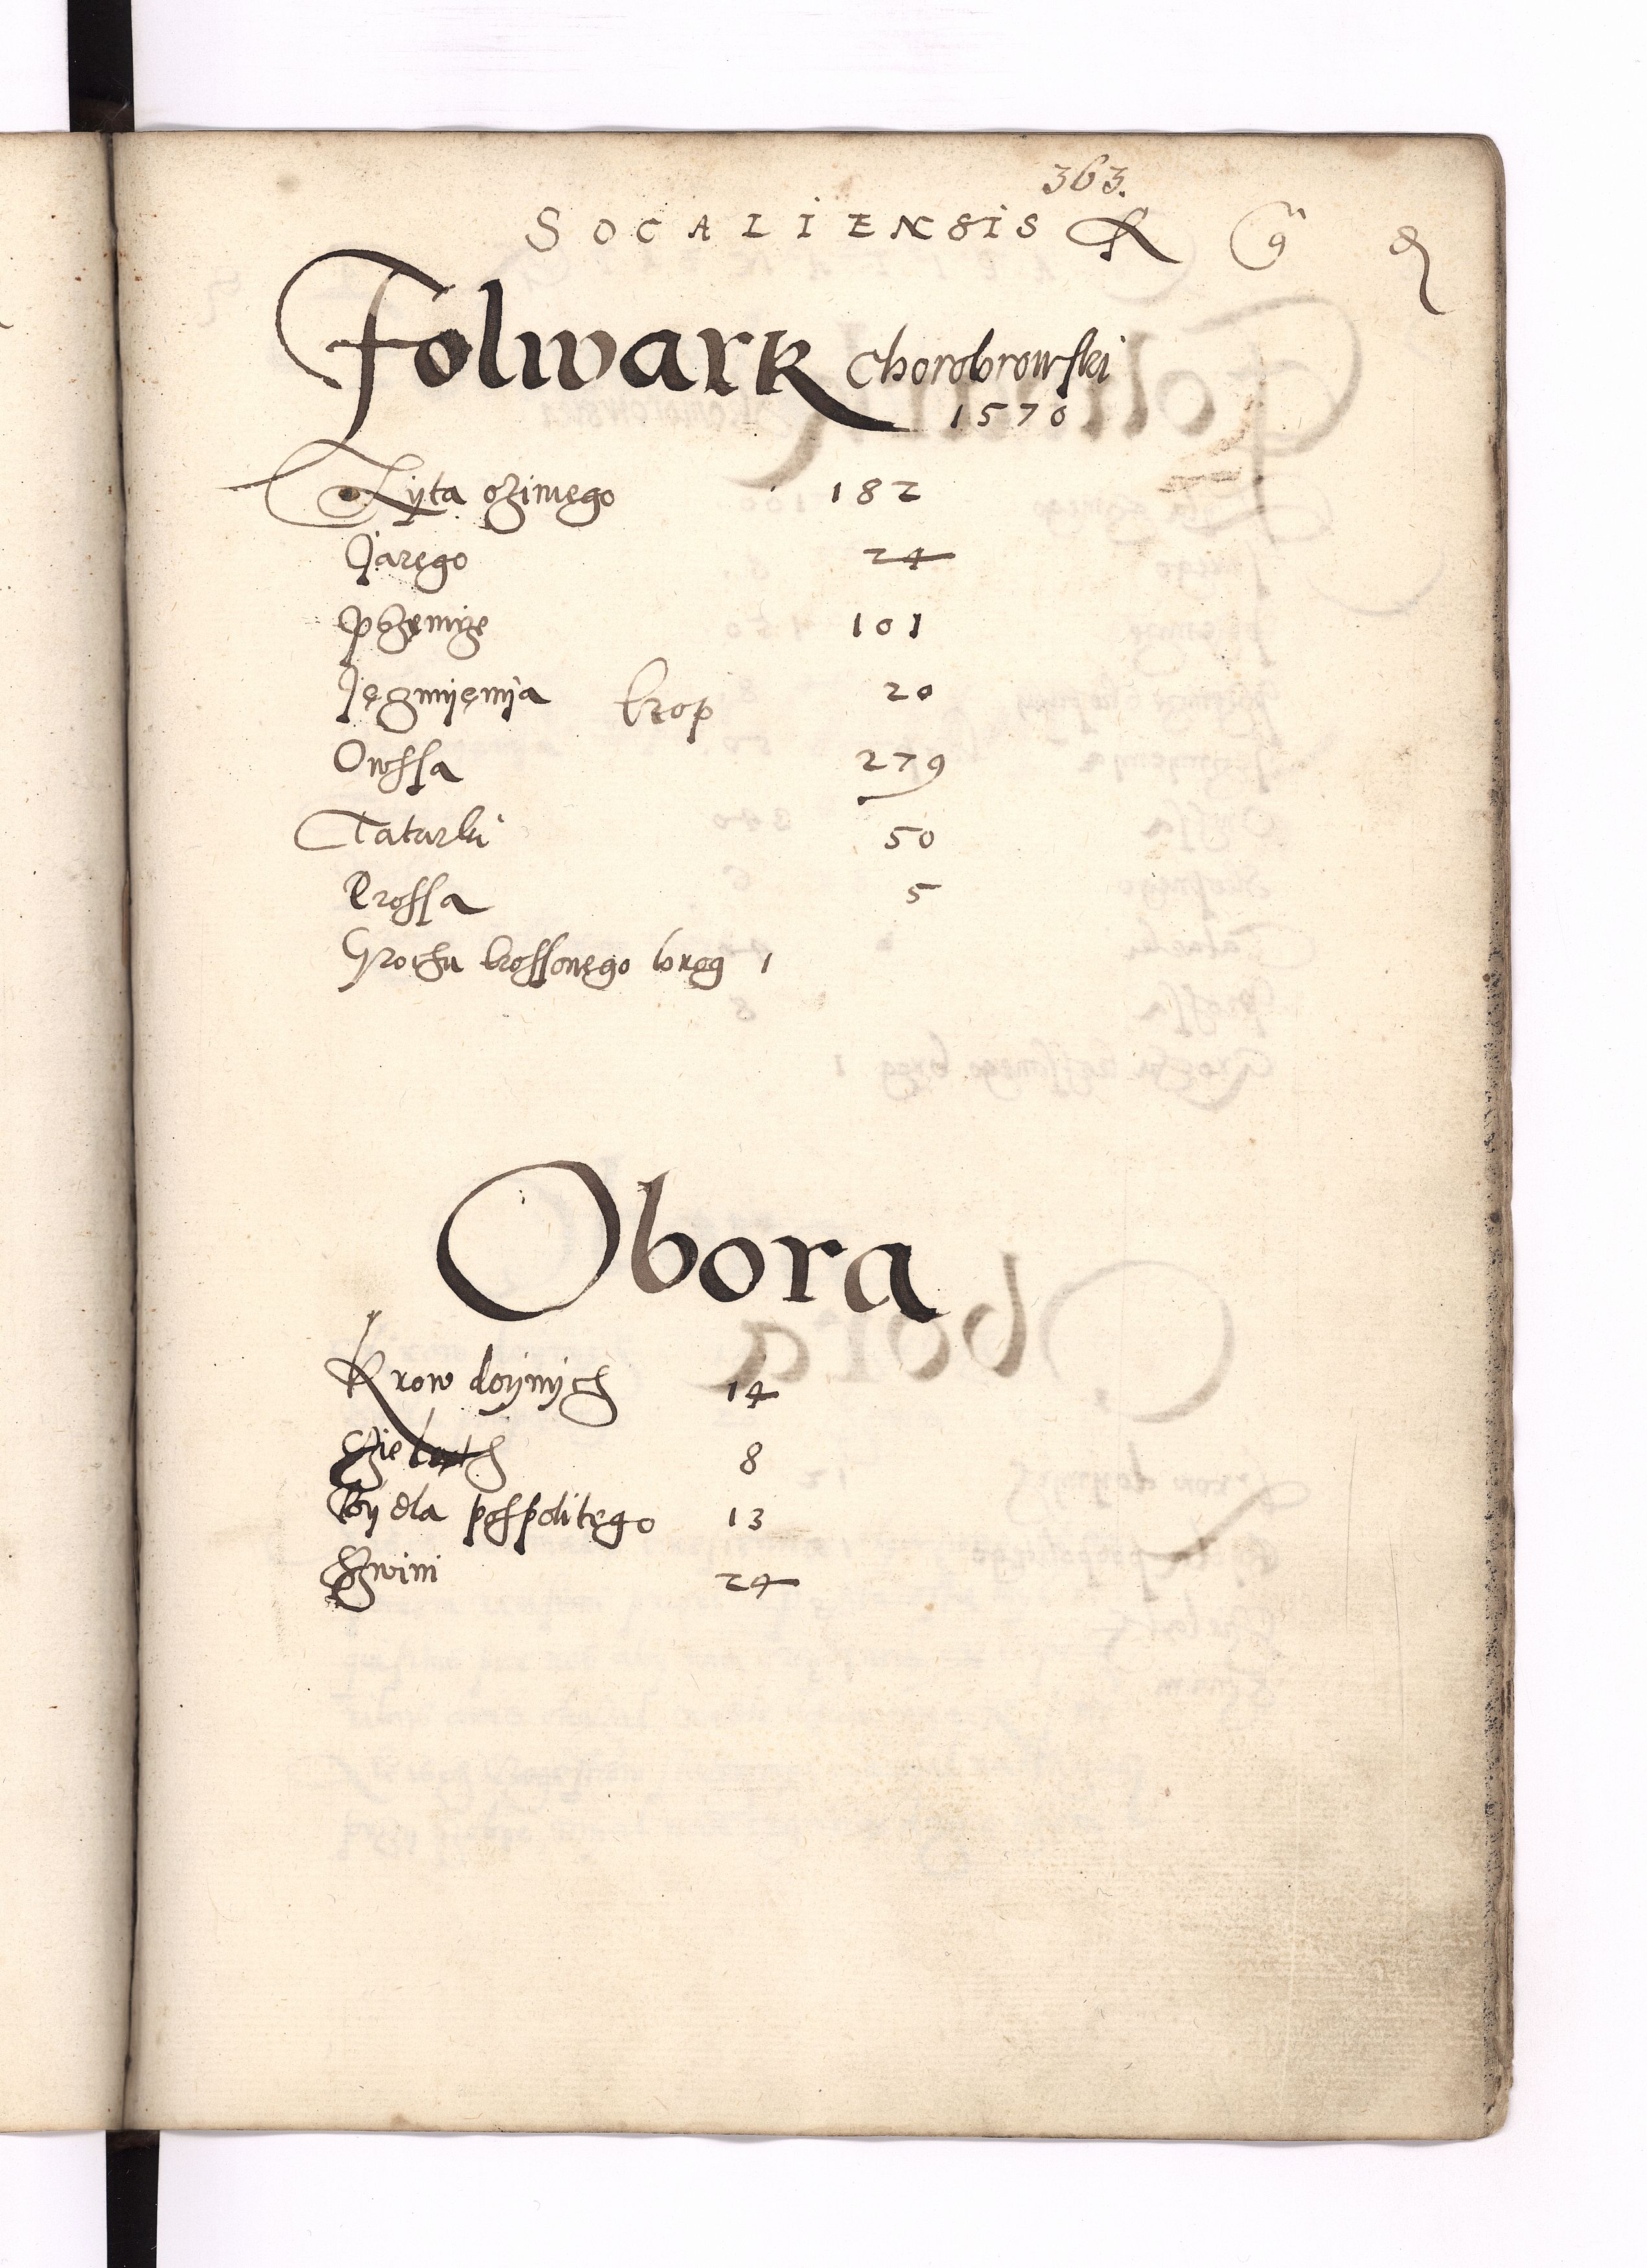 363.
SOCALIENSIS
Folwark Chorobrowski
1570
Zyta ozimego 182
Jarego 24
pszenice 101
Jęczmięnia kop 20
Owssa 279
Tatarki 50
Prossa 5
Grochu kossonego brog 1
Obora
Krow doynych 14
8
Bydla pospolitego 13
Swini 24